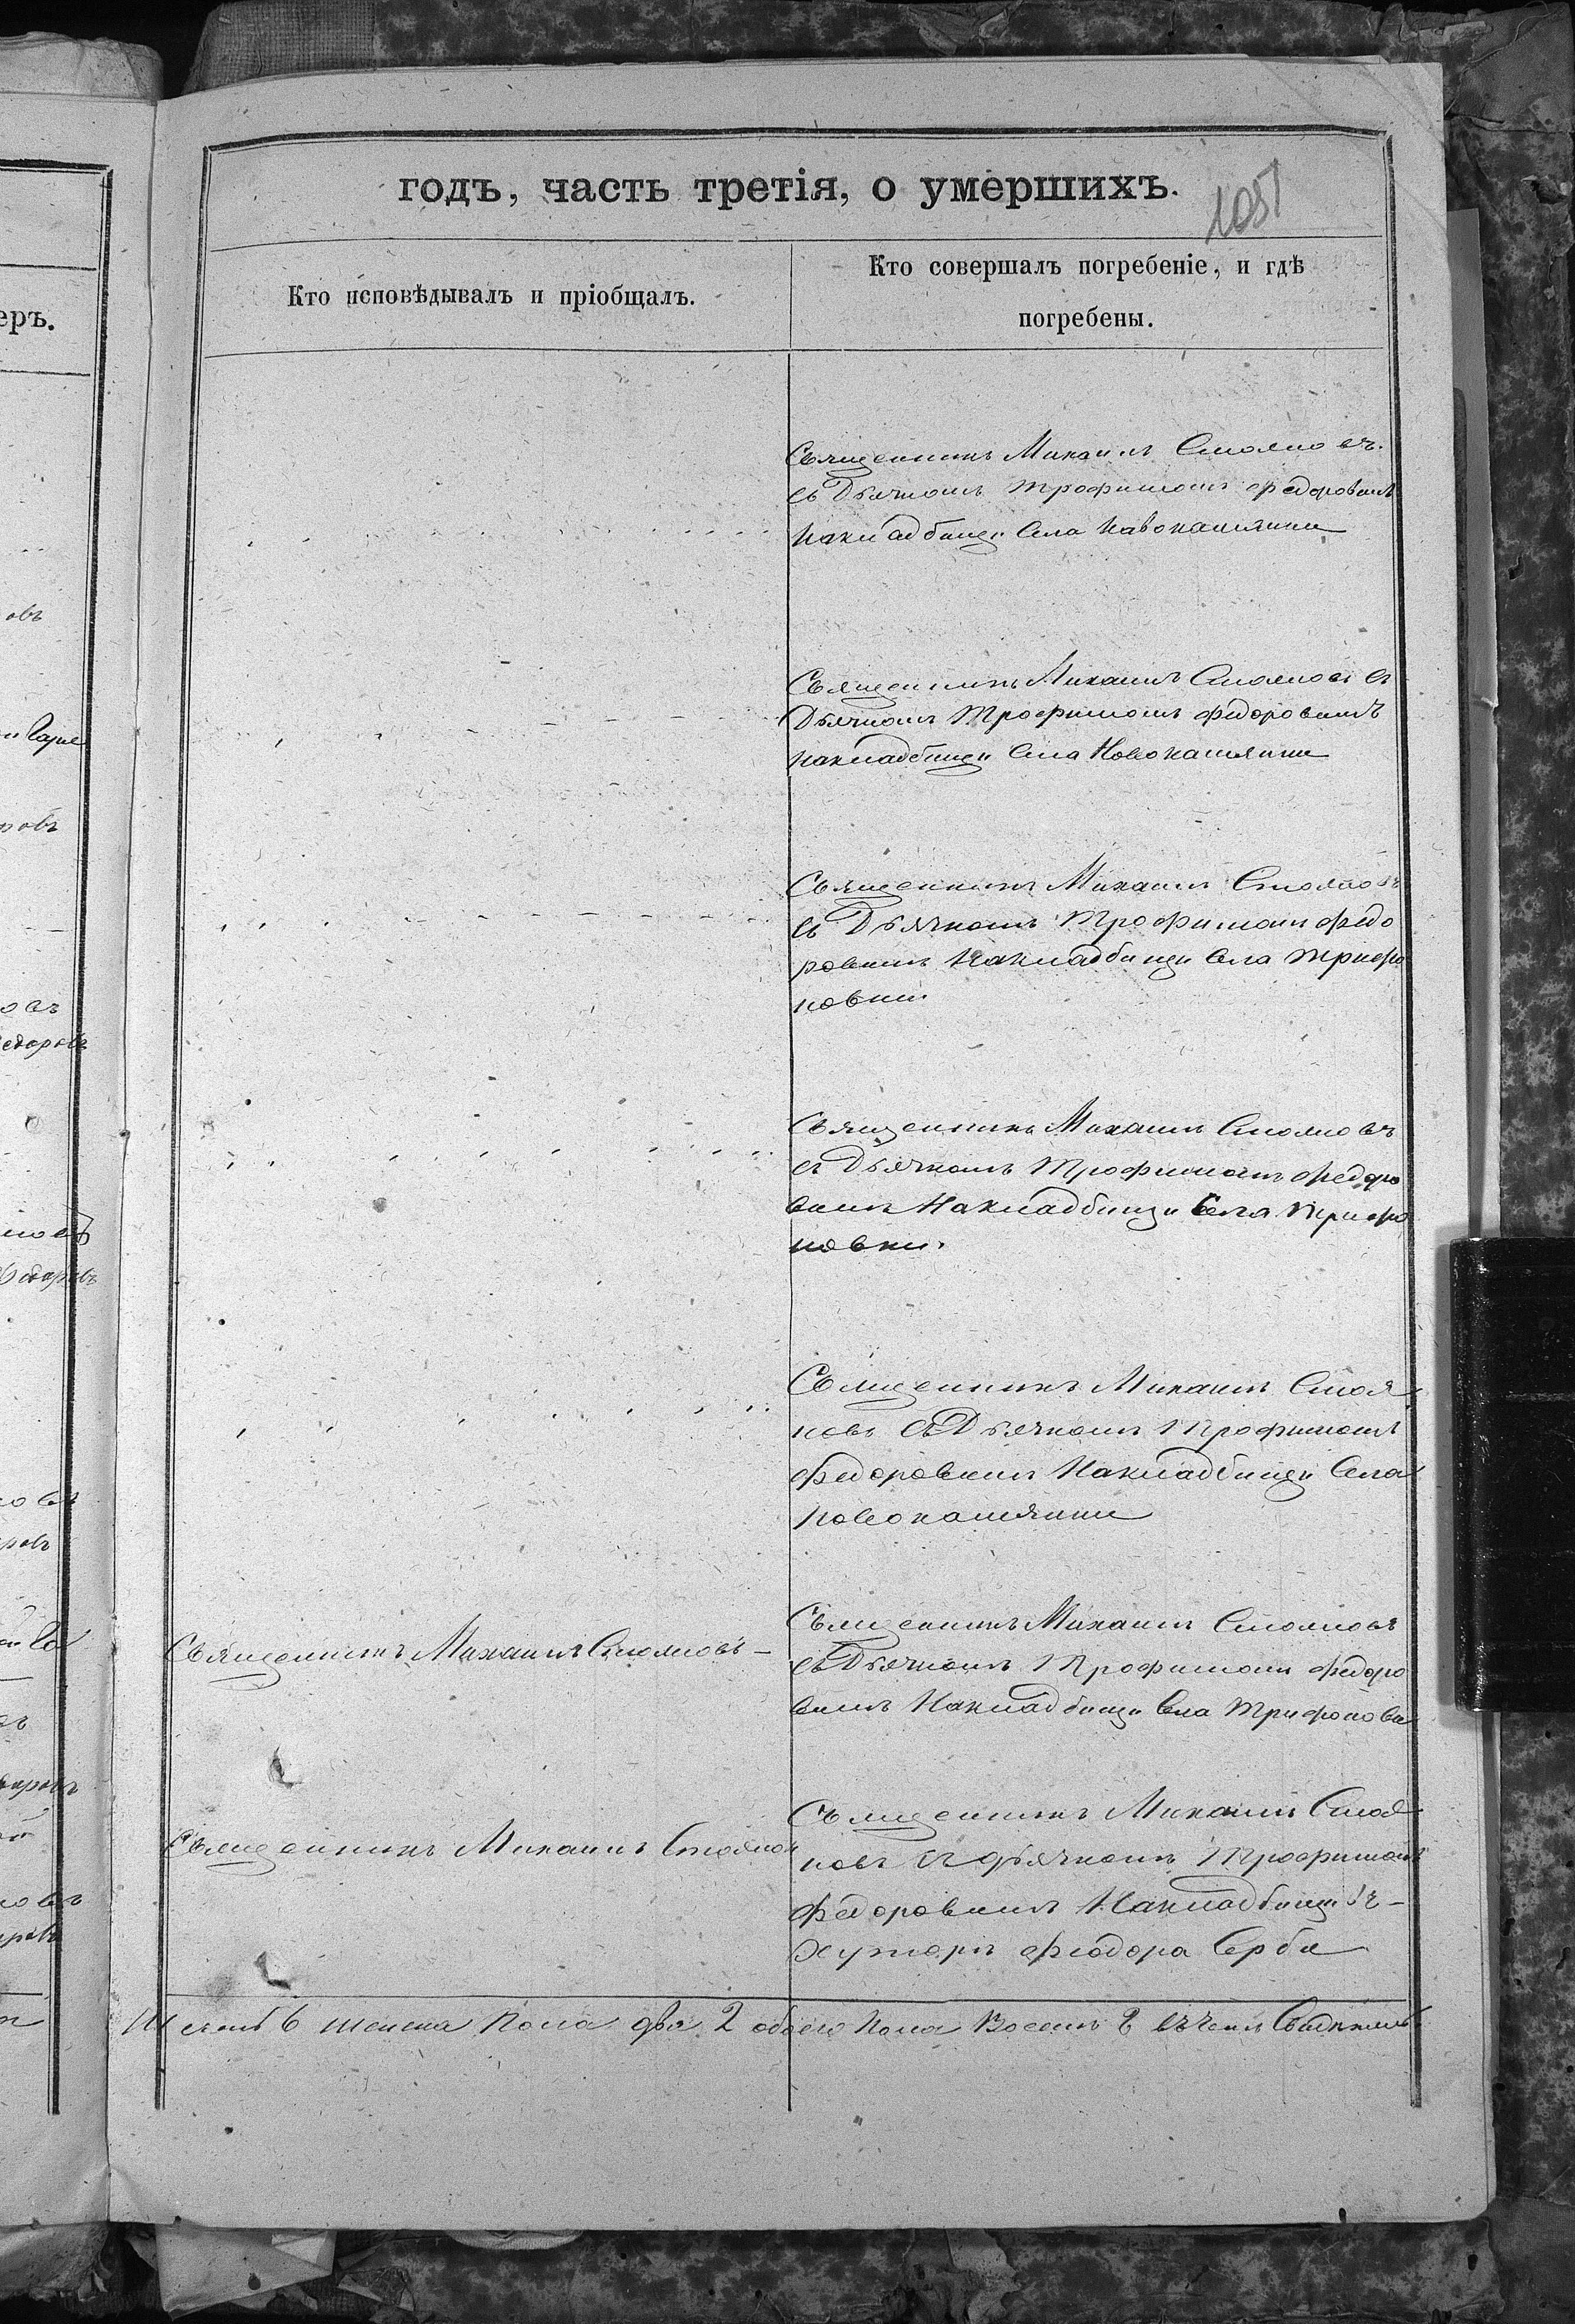 годъ, часть третія, о умершихъ.
1057
Кто исповѣдывалъ и пріобщалъ.
Кто совершалъ погребеніе, и гдѣ
погребены.
Священникъ Михаилъ Стояновъ
съ Дьячкомъ Трофимомъ Федоровымъ
На кладбищи Села Новокашянки
Священникъ Михаилъ Стояновъ съ
Дьячкомъ Трофимомъ Федоровымъ
На кладбищи Села Новокашянки
Священникъ Михаилъ Стояновъ
съ Дьячкомъ Трофимомъ Федо
ровымъ На кладбищи Села Трифо
новки
Священникъ Михаилъ Стояновъ
съ Дьячкомъ Трофимомъ Федоро
вымъ На кладбищи Села Трифо
новки.
Священникъ Михаилъ Стоя
новъ съ Дьячкомъ Трофимомъ
Федоровымъ На кладбищи Села
Новокашянки
Священникъ Михаилъ Стояновъ
Священникъ Михаилъ Стояновъ
съ Дьячкомъ Трофимомъ Федоро
вымъ На кладбищи Села Трифонов
Священникъ Михаилъ Стоянов
Священникъ Михаилъ Стоя
новъ съ дьячкомъ Трофимомъ
Федоровымъ На кладбищи въ
Хуторѣ Феодора Серба
6 женска Пола два 2 обоего Пола Восемь 8 въ чемъ